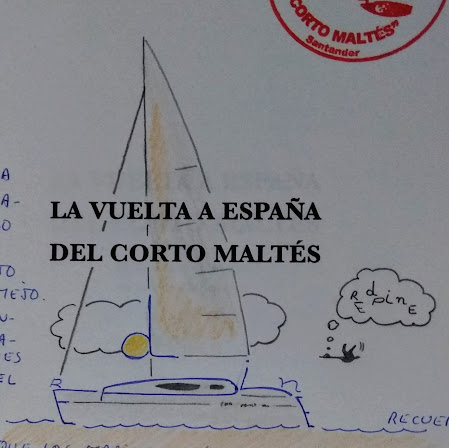 CORTO MALTÉS"
Santander
LA VUELTA A ESPAÑA
DEL CORTO MALTÉS
REdpinE
A
A-
O
TO
MEJO.
N-
A-
ES
EL
R
n
RECUE
QUE LAS